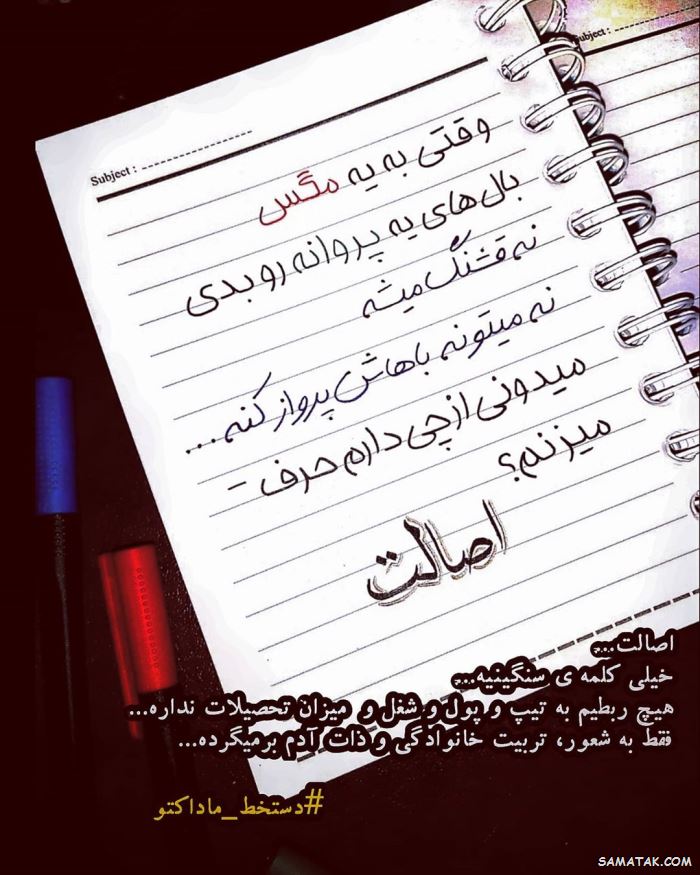 Subject :
Subject :
وقتی به یه مگس
بال های یه پروانه رو بدی
نه قشنگ میشه
نه میتونه باهاش پرواز کنه...
میدونی از چی دارم حرف -
میزنم؟
اصالت
اصالت...
خیلی کلمه ی سنگینیه...
هیچ ربطیم به تیپ و پول و شغل و میزان تحصیلات نداره...
فقط به شعور، تربیت خانوادگی و ذات آدم برمیگرده...
#دستخط_ماداکتو
SAMATAK.COM